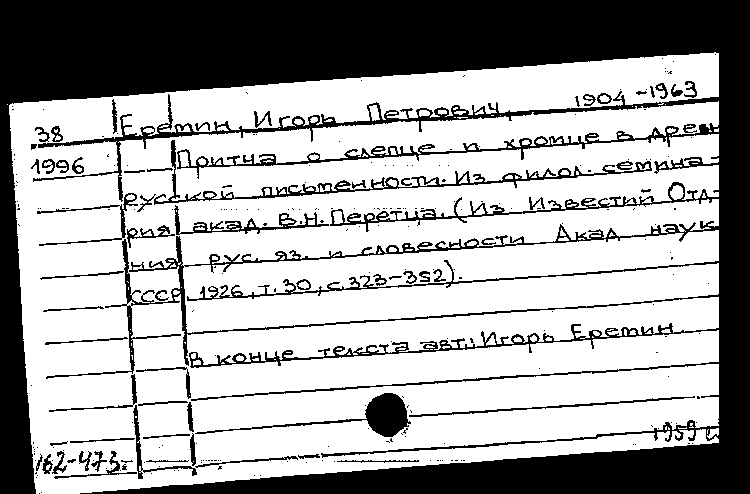 38 Еремин, Игорь Петрович, 1904-1963
1996 Притча о слепце и хромце в древн
русской письменности. Из филол. семина-
рия акад. В.Н. Перетца. (Из Известий Отд-
ния рус. яз. и словесности Акад наук
СССР. 1926, т. 30, с. 323-352).
В конце текста авт.: Игорь Еремин
1959
162-473.